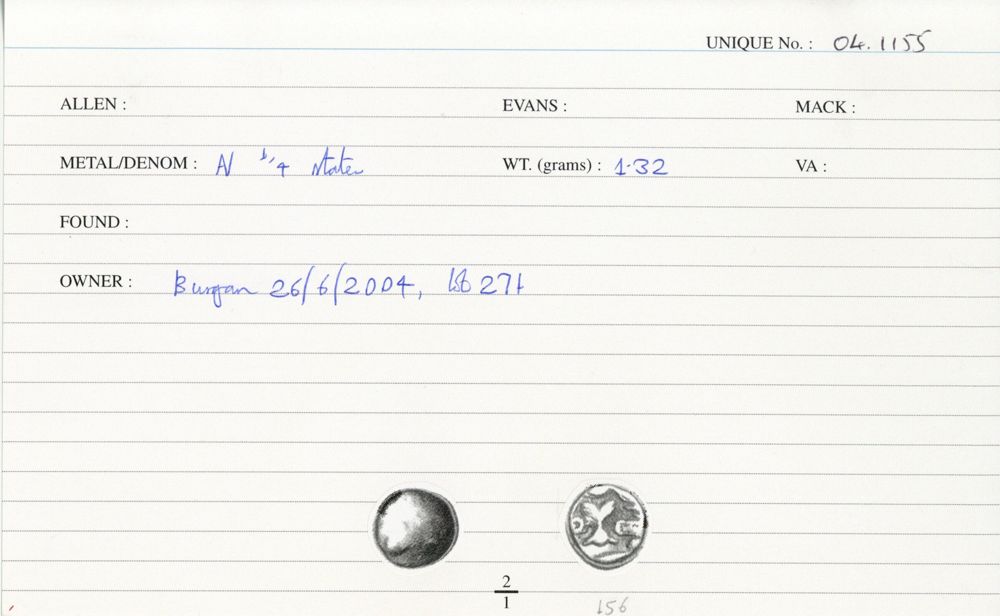 UNIQUE No. : 04.1155
ALLEN : EVANS : MACK :
METAL/DENOM : N 1/4 stater WT. (grams) : 1.32 VA :
FOUND :
OWNER : Burgan 26/6/2004, lot 271
2
1
156